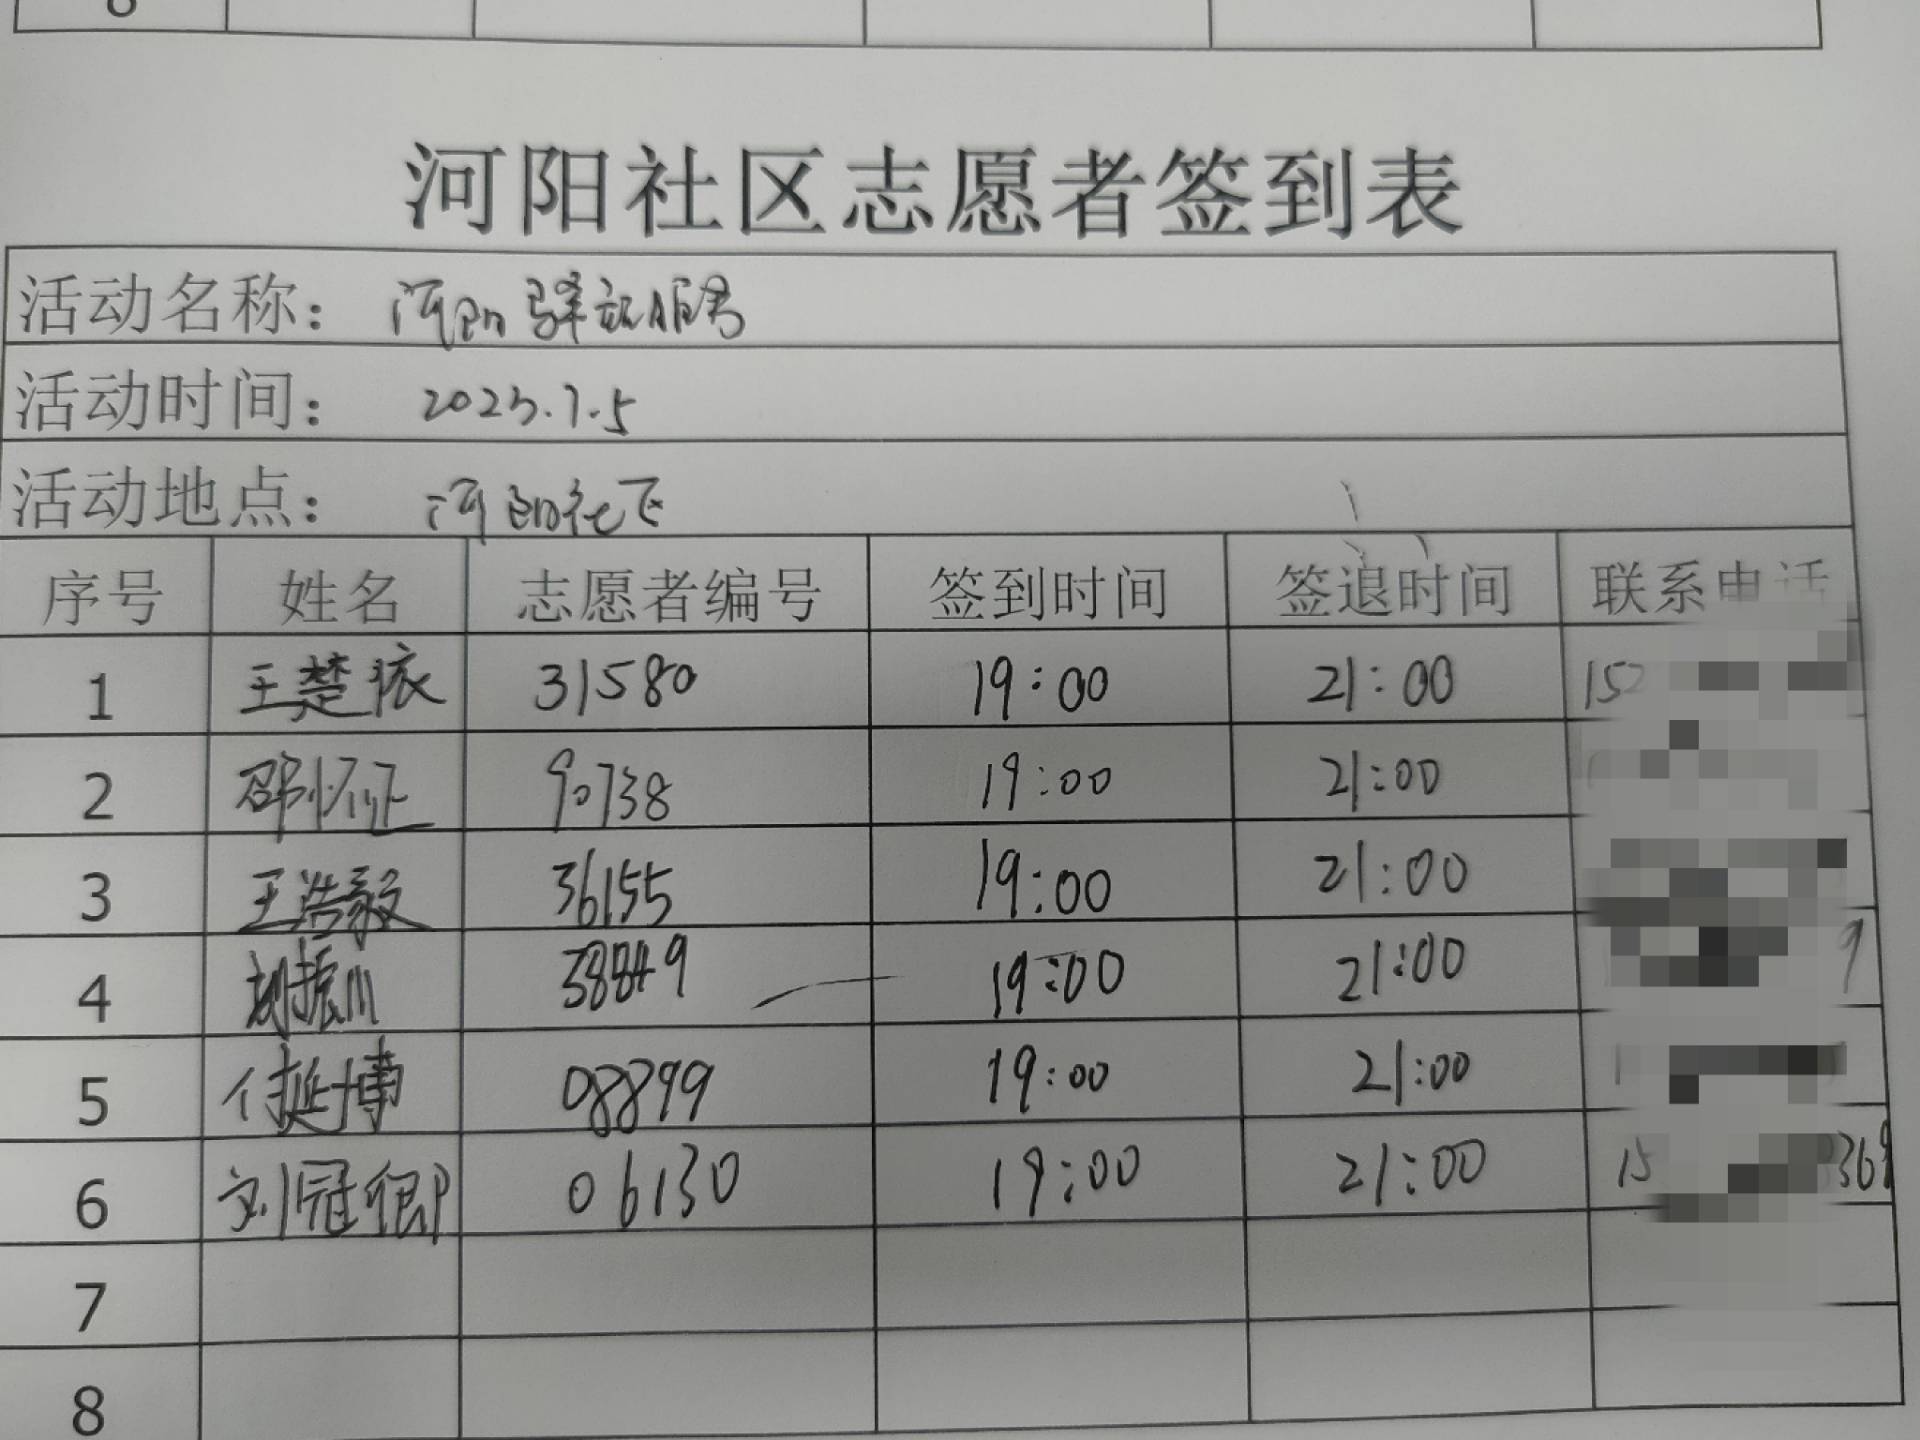 河阳社区志愿者签到表
活动名称： 河阳驿站服务
活动时间： 2023.7.5
活动地点： 河阳社区
序号 姓名 志愿者编号 签到时间 签退时间 联系电话
1 王楚依 31580 19:00 21:00 152
2 邵怀证 90738 19:00 21:00
3 王浩毅 36155 19:00 21:00
4 胡振川 38849 19:00 21:00 9
5 付挺博 08899 19:00 21:00 1
6 刘冠 06130 19:00 21:00 15 369
7
8